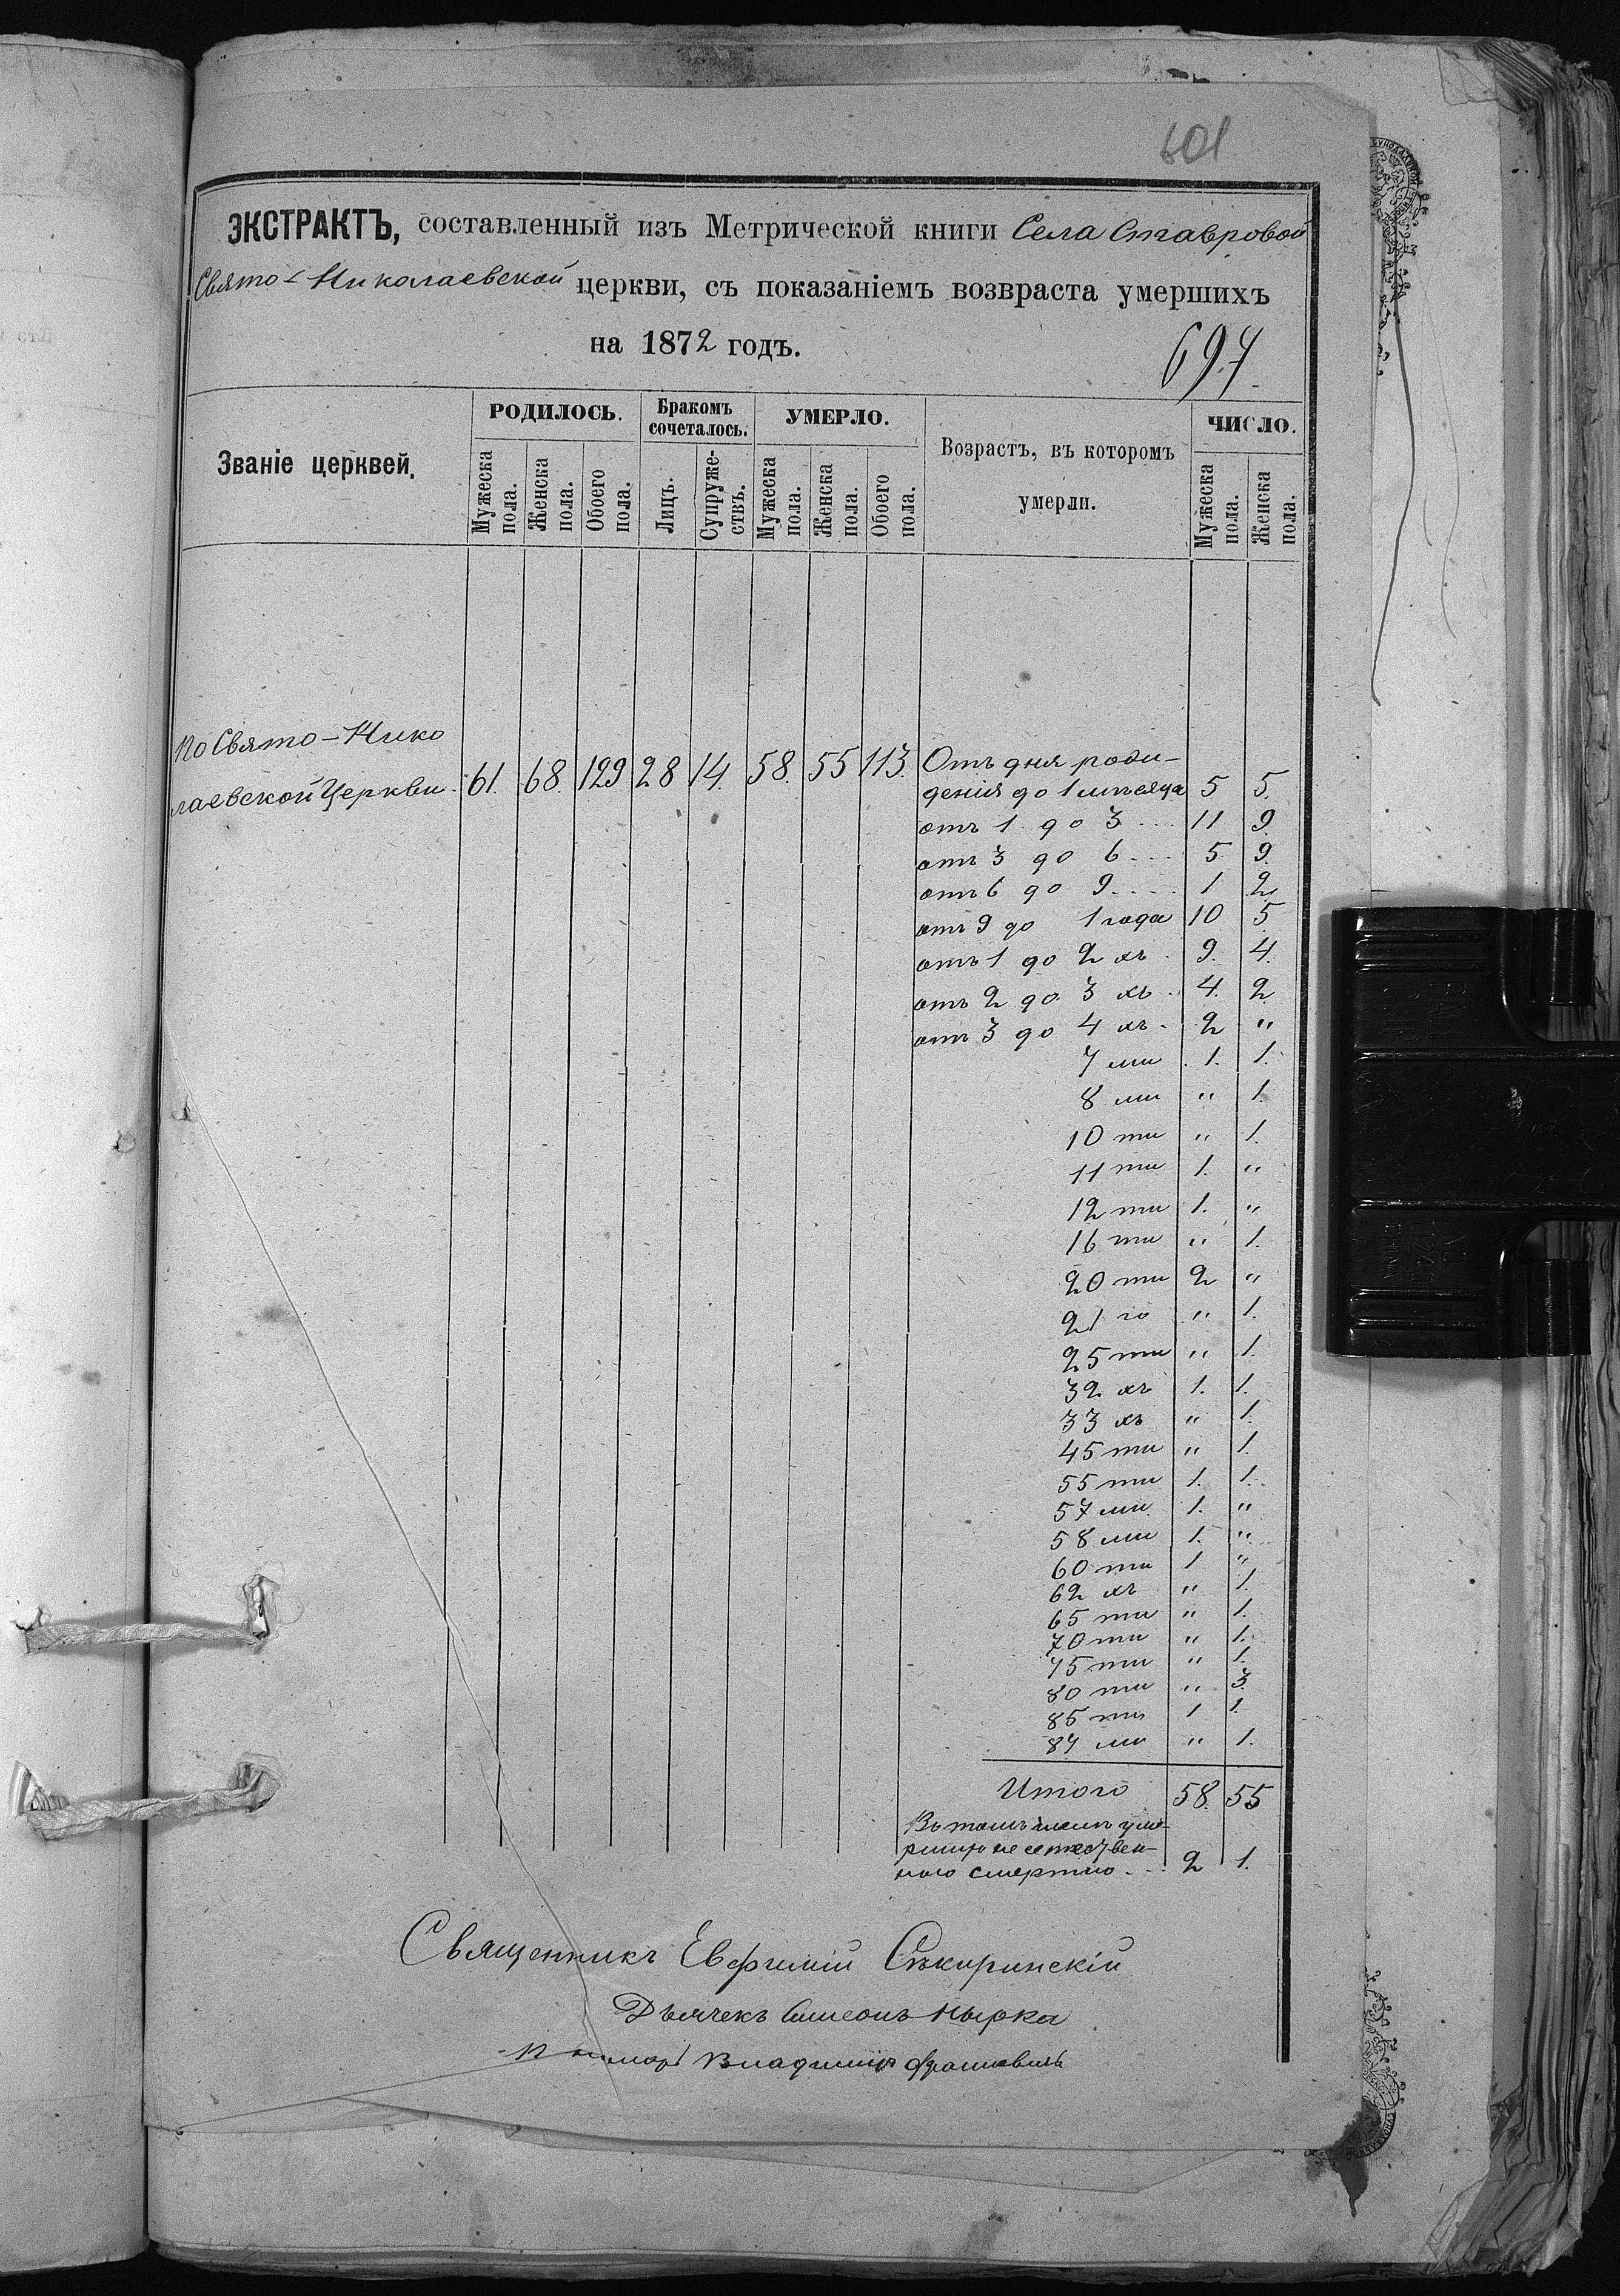 601
ЭКСТРАКТЪ, составленный изъ Метрической книги Села Ставровой
Свято-Николаевской церкви, съ показаніемъ возвраста умершихъ
на 1872 годъ.
697.
Званіе церквей.
РОДИЛОСЬ.
Бракомъ сочеталось.
УМЕРЛО.
Возрастъ, въ которомъ умерли.
ЧИСЛО.
Мужеска пола.
Женска пола.
Обоего пола.
Лицъ.
Супружествъ.
Мужеска пола.
Женска пола.
Обоего пола.
Мужеска пола.
Женска пола.
По Свято-Нико
лаевской Церкви. 61. 68. 129 28 14. 58. 55 113.
Отъ дня роди-
денія до 1 мѣсяца 5 5.
отъ 1 до 3 ... 11 9.
отъ 3 до 6 ... 5. 9.
отъ 6 до 9 .... 1 2
отъ 9 до 1 года 10 5.
отъ 1 до 2 хъ . 9. 4.
отъ 2 до 3 хъ . 4. 2
отъ 3 до 4 хъ . 2 "
7 ми . 1. 1.
8 ми " 1.
10 ти " 1.
11 ти 1. "
12 ти 1. "
16 ти " 1.
20 ти 2 "
21 го " 1.
25 ти " 1.
32 хъ 1. 1.
33 хъ " 1.
45 ти " 1.
55 ти 1. 1.
57 ми 1. "
58 ми 1. "
60 ти 1 "
62 хъ " 1.
65 ти " 1.
70 ти " 1.
75 ти " 1.
80 ти " 3.
85 ти 1 1.
87 ми " 1.
Итого 58. 55
Въ томъ числѣ уме-
ршихъ не естествен-
ною смертію ... 2 1.
Священникъ Евфимій Сѣкиринскій
Дьячекъ Симеонъ Кырка
Владиміръ